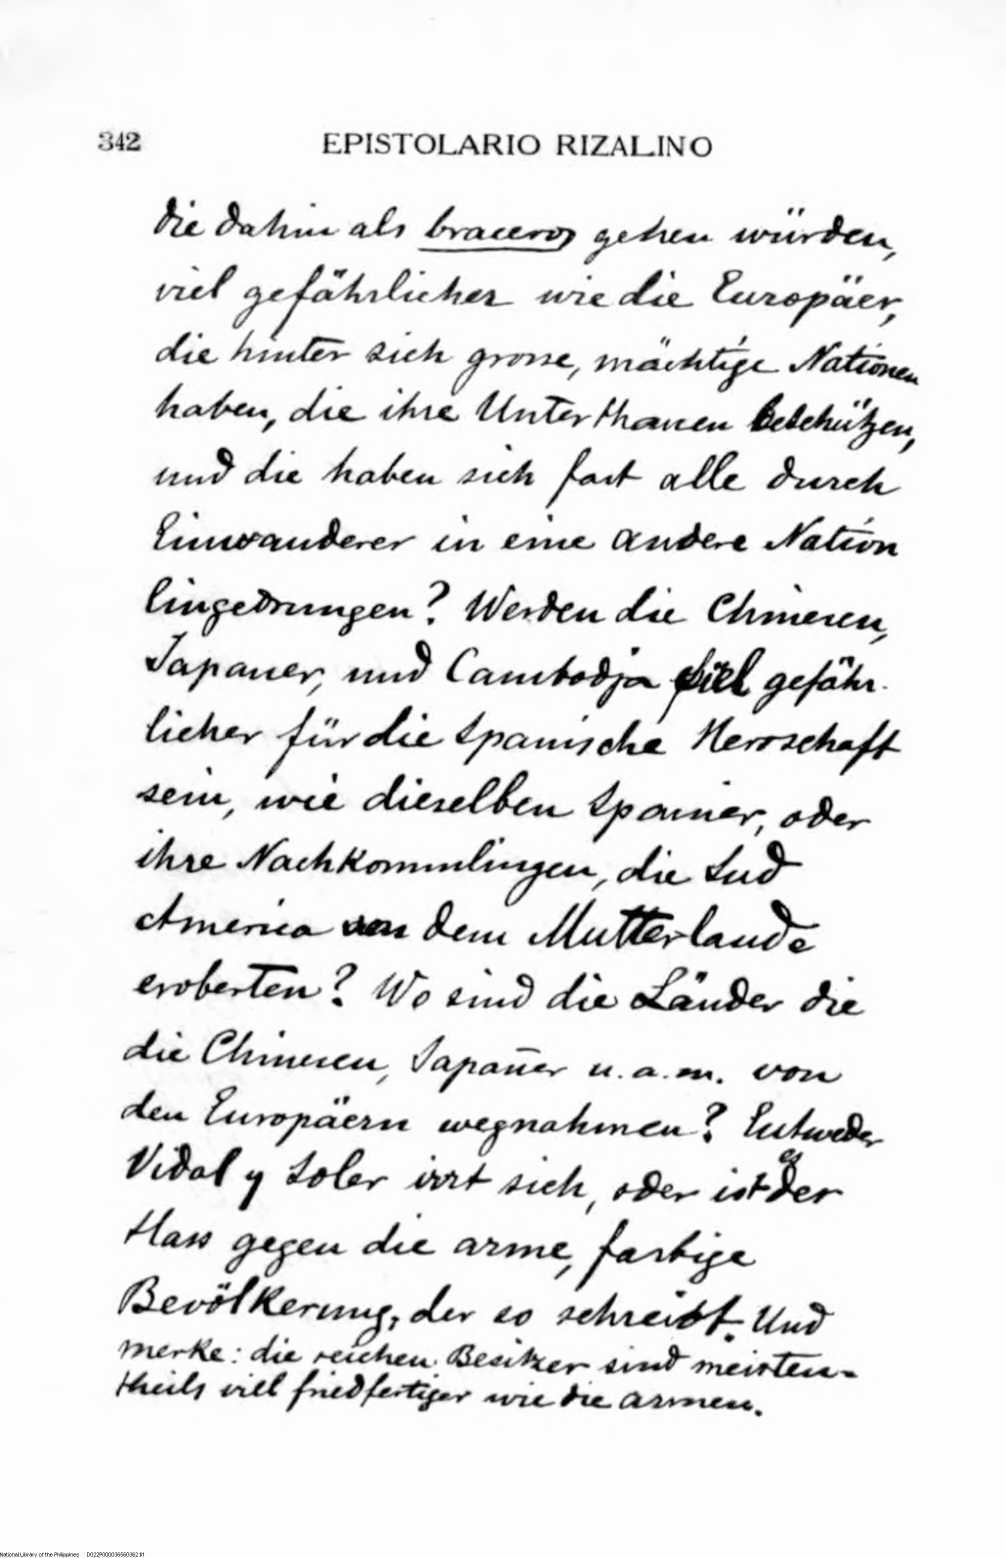 342 EPISTOLARIO RIZALINO
die dahin als braceros gehen würden,
viel gefährlicher wie die Europäer,
die hinter sich grosse, mächtige Nationen
haben, die ihre Unterthanen beschützen,
und die haben sich fast alle durch
Einwanderer in eine andere Nation
eingedrungen? Werden die Chinesen,
Japaner, und Cambodja viel gefähr-
licher für die spanische Herrschaft
sein, wie dieselben Spanier, oder
ihre Nachkommlingen, die Sud
America von dem Mutterlande
eroberten? Wo sind die Länder die
die Chinesen, Japaner u. a. m. von
den Europäern wegnahmen? Entweder
Vidal y Soler irrt sich, oder ist es der
Hass gegen die arme, farbige
Bevölkerung, der so schreibt. Und
merke: die reichen Besitzer sind meisten-
theils viell friedfertiger wie die armen.
National Library of the Philippines